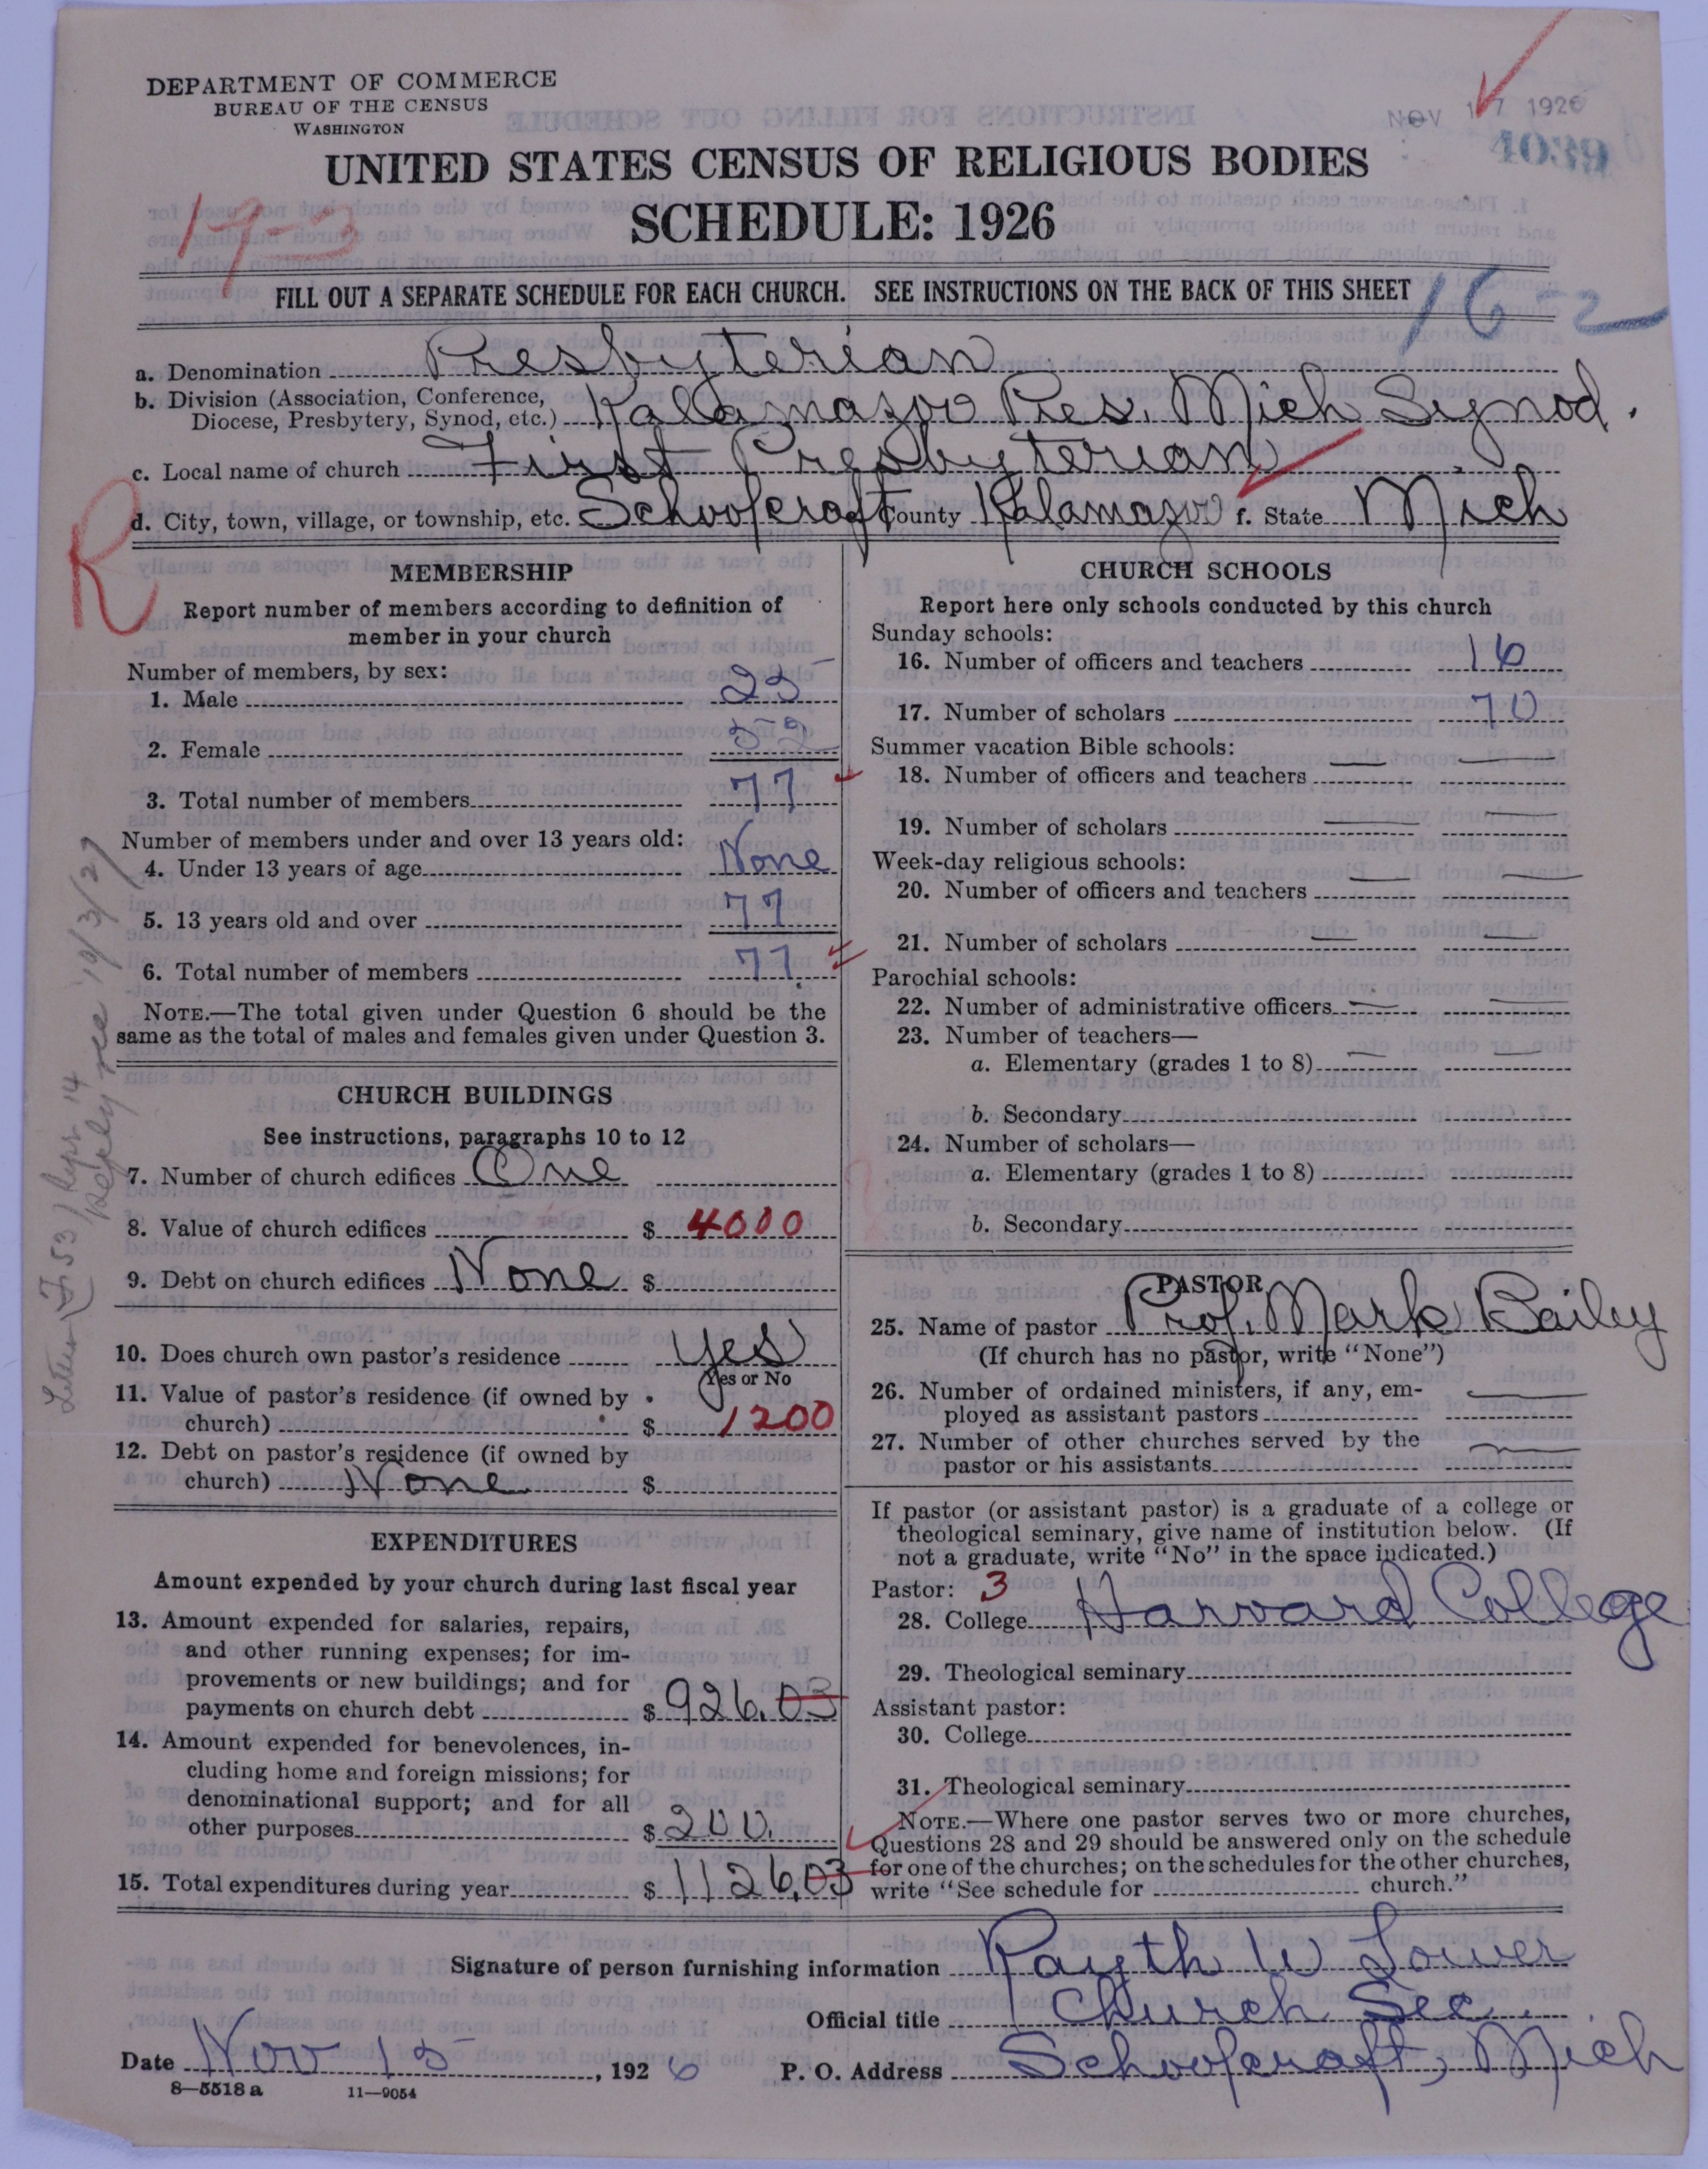 DEPARTMENT OF COMMERCE
BUREAU OF THE CENSUS
WASHINGTON
NOV 17 1926
UNITED STATES CENSUS OF RELIGIOUS BODIES
SCHEDULE: 1926
19-3
FILL OUT A SEPARATE SCHEDULE FOR EACH CHURCH. SEE INSTRUCTIONS ON THE BACK OF THIS SHEET
16-2
a. Denomination Presbyterian
b. Division (Association, Conference, Diocese, Presbytery, Synod, etc.) Kalamazoo Pres. Mich Synod.
c. Local name of church First Presbyterian
d. City, town, village, or township, etc. Schoolcraft County Kalamazoo f. State Mich
R
MEMBERSHIP
Report number of members according to definition of
member in your church
Number of members, by sex:
1. Male 25
2. Female 52
3. Total number of members 77
Number of members under and over 13 years old:
4. Under 13 years of age None
5. 13 years old and over 77
6. Total number of members 77
NOTE.—The total given under Question 6 should be the
same as the total of males and females given under Question 3.
CHURCH BUILDINGS
See instructions, paragraphs 10 to 12
7. Number of church edifices One
8. Value of church edifices $ 4000
9. Debt on church edifices None $
10. Does church own pastor's residence Yes
Yes or No
11. Value of pastor's residence (if owned by
church) $ 1200
12. Debt on pastor's residence (if owned by
church) None $
EXPENDITURES
Amount expended by your church during last fiscal year
13. Amount expended for salaries, repairs,
and other running expenses; for im-
provements or new buildings; and for
payments on church debt $ 926.03
14. Amount expended for benevolences, in-
cluding home and foreign missions; for
denominational support; and for all
other purposes $ 200.
15. Total expenditures during year $ 1126.03
CHURCH SCHOOLS
Report here only schools conducted by this church
Sunday schools:
16. Number of officers and teachers 16
17. Number of scholars 70
Summer vacation Bible schools:
18. Number of officers and teachers
19. Number of scholars
Week-day religious schools:
20. Number of officers and teachers
21. Number of scholars
Parochial schools:
22. Number of administrative officers
23. Number of teachers—
a. Elementary (grades 1 to 8)
b. Secondary
24. Number of scholars—
a. Elementary (grades 1 to 8)
b. Secondary
PASTOR
25. Name of pastor Prof. Mark Bailey
(If church has no pastor, write "None")
26. Number of ordained ministers, if any, em-
ployed as assistant pastors
27. Number of other churches served by the
pastor or his assistants
If pastor (or assistant pastor) is a graduate of a college or
theological seminary, give name of institution below. (If
not a graduate, write "No" in the space indicated.)
Pastor: 3
28. College Harvard College
29. Theological seminary
Assistant pastor:
30. College
31. Theological seminary
NOTE.—Where one pastor serves two or more churches,
Questions 28 and 29 should be answered only on the schedule
for one of the churches; on the schedules for the other churches,
write "See schedule for church."
Signature of person furnishing information W Lower
Official title Church Sec.
Date Nov 15, 1926 P. O. Address Schoolcraft, Mich
8-5518 a 11-9054